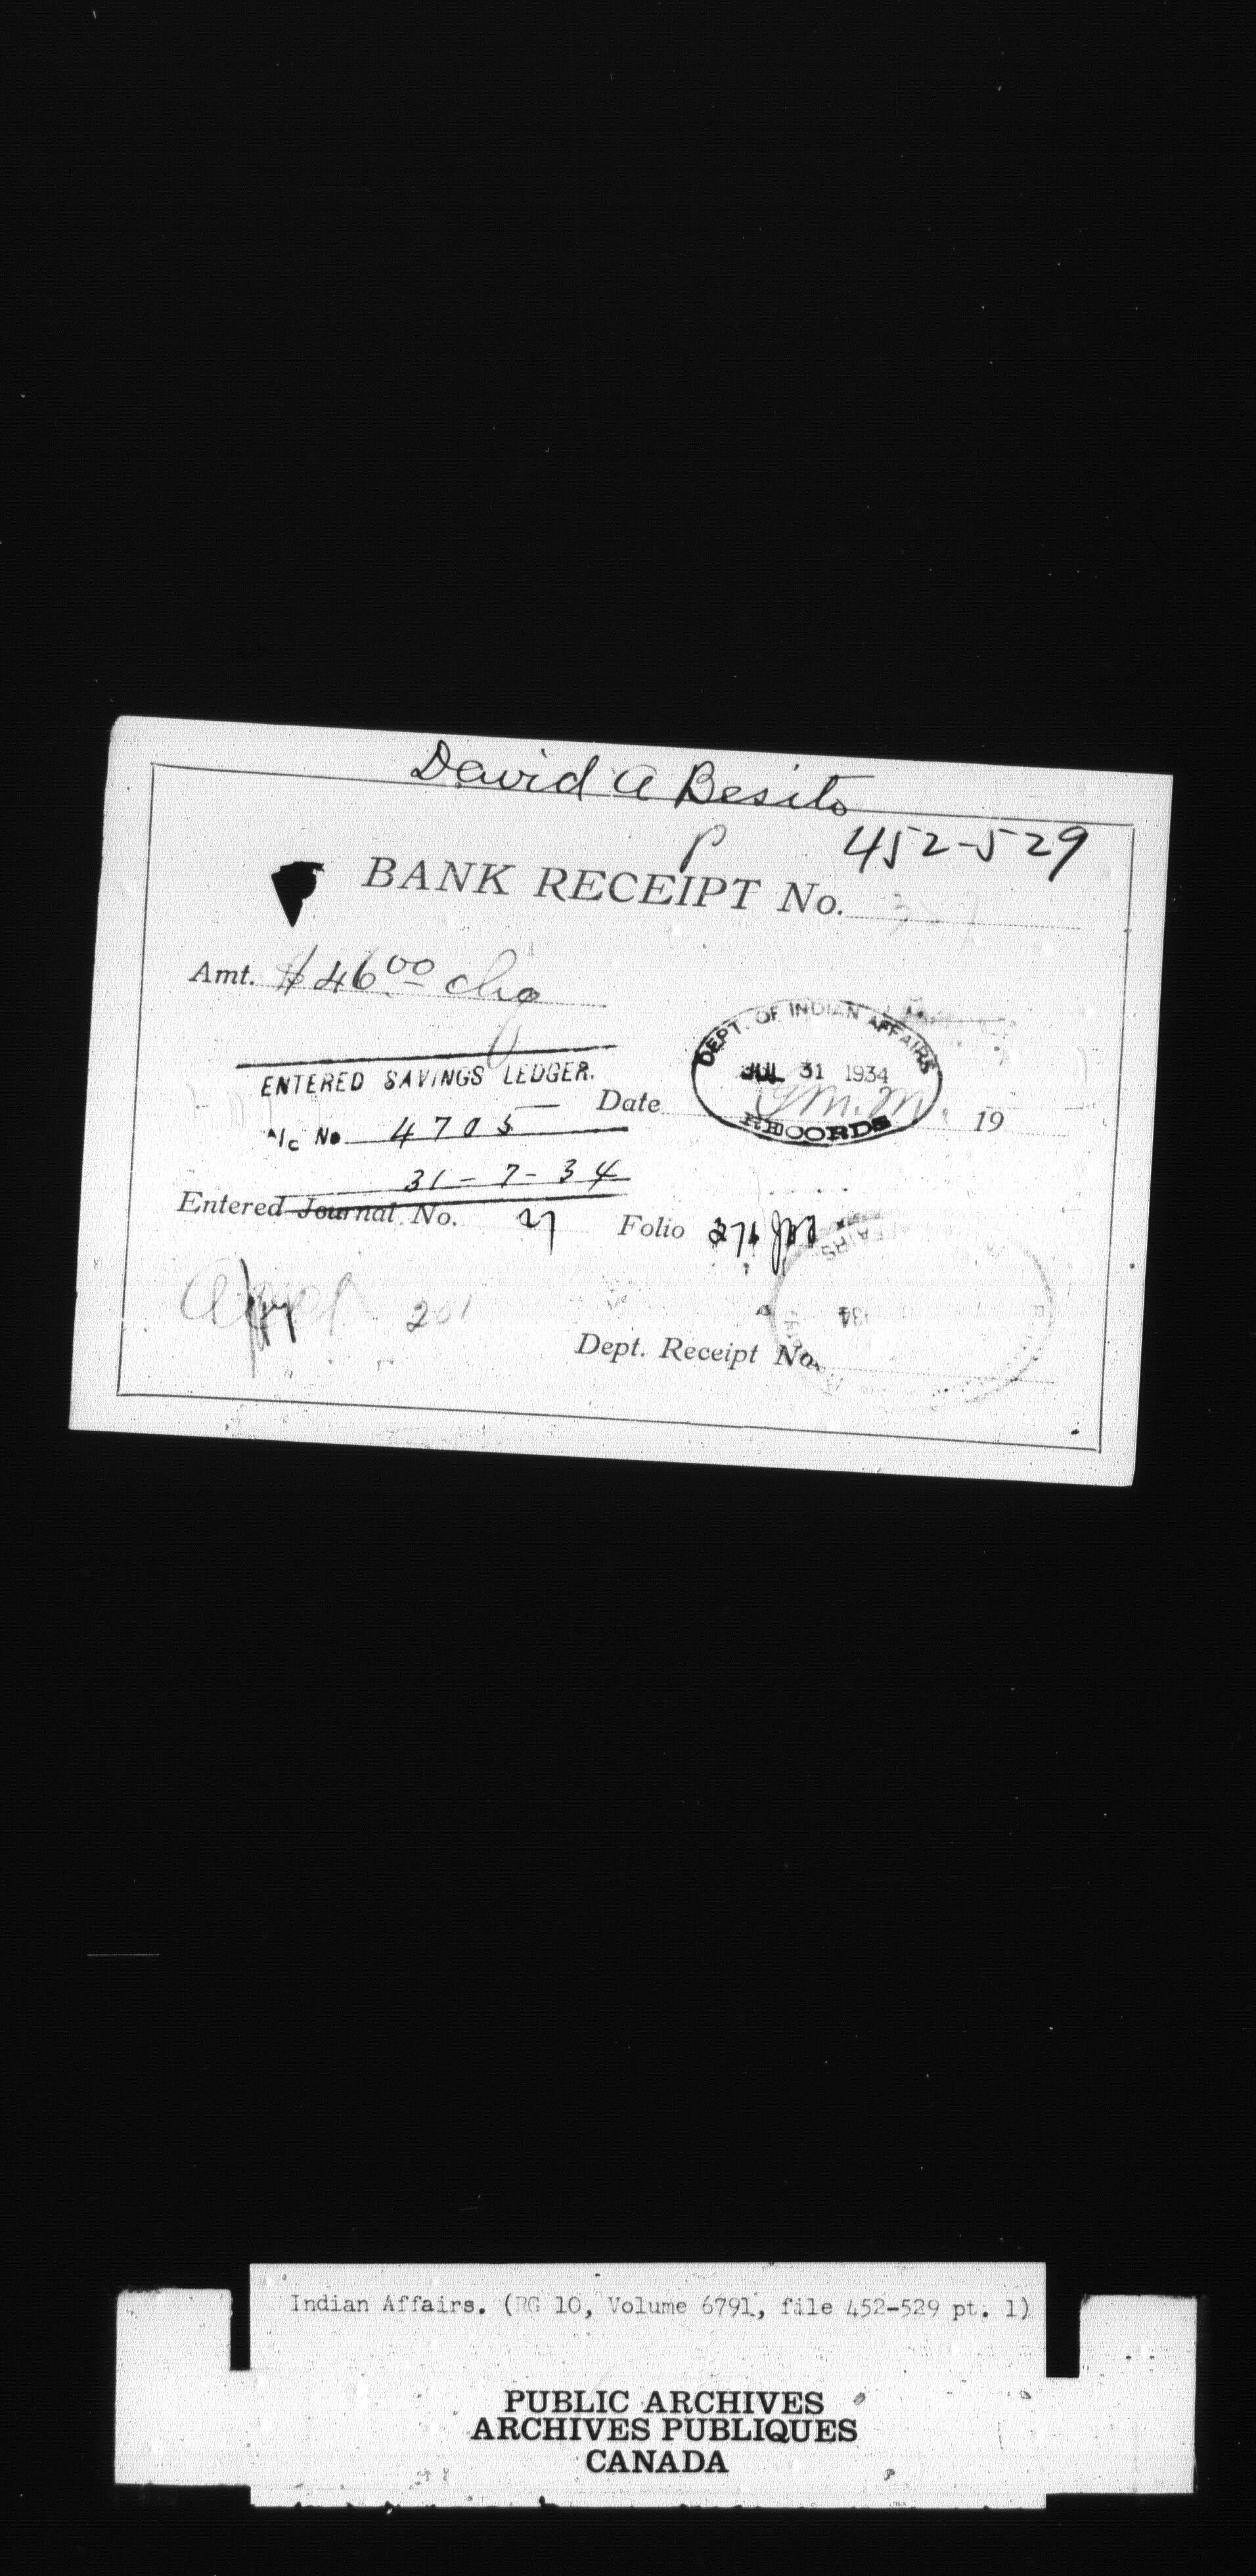 David A Besito
P 452-529
BANK RECEIPT No.
Amt. $46.00 chq
DEPT. OF INDIAN AFFAIRS
JUL 31 1934
RECORDS
ENTERED SAVINGS LEDGER.
A/c No 4705
Date 19
31-7-34
Entered Journal No. 27 Folio
201
Dept. Receipt No.
Indian Affairs. (RG 10, Volume 6791, file 452-529 pt. 1)
PUBLIC ARCHIVES
ARCHIVES PUBLIQUES
CANADA